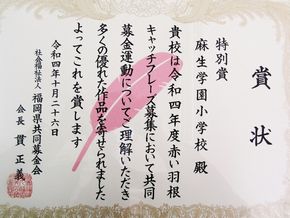 賞状
特別賞
麻生学園小学校 殿
貴校は令和四年度赤い羽根
キャッチフレーズ募集において共同
募金運動についてご理解いただき
多くの優れた作品を寄せられました
よってこれを賞します
令和四年十月二十六日
社会福祉法人 福岡県共同募金会
会長 貫正義